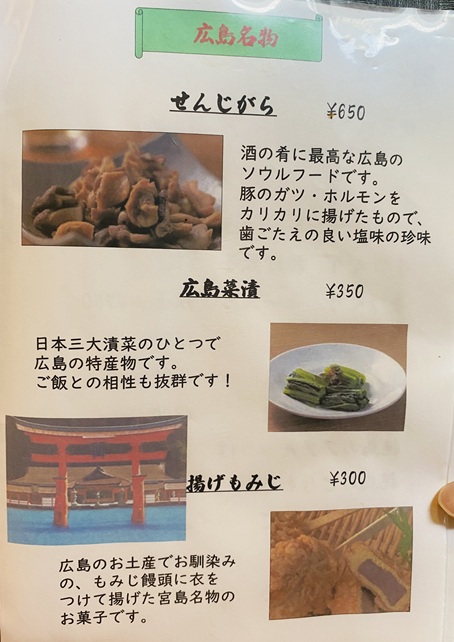 広島名物
せんじがら ¥650
酒の肴に最高な広島の
ソウルフードです。
豚のガツ・ホルモンを
カリカリに揚げたもので、
歯ごたえの良い塩味の珍味
です。
広島菜漬 ¥350
日本三大漬菜のひとつで
広島の特産物です。
ご飯との相性も抜群です！
揚げもみじ ¥300
広島のお土産でお馴染み
の、もみじ饅頭に衣を
つけて揚げた宮島名物の
お菓子です。